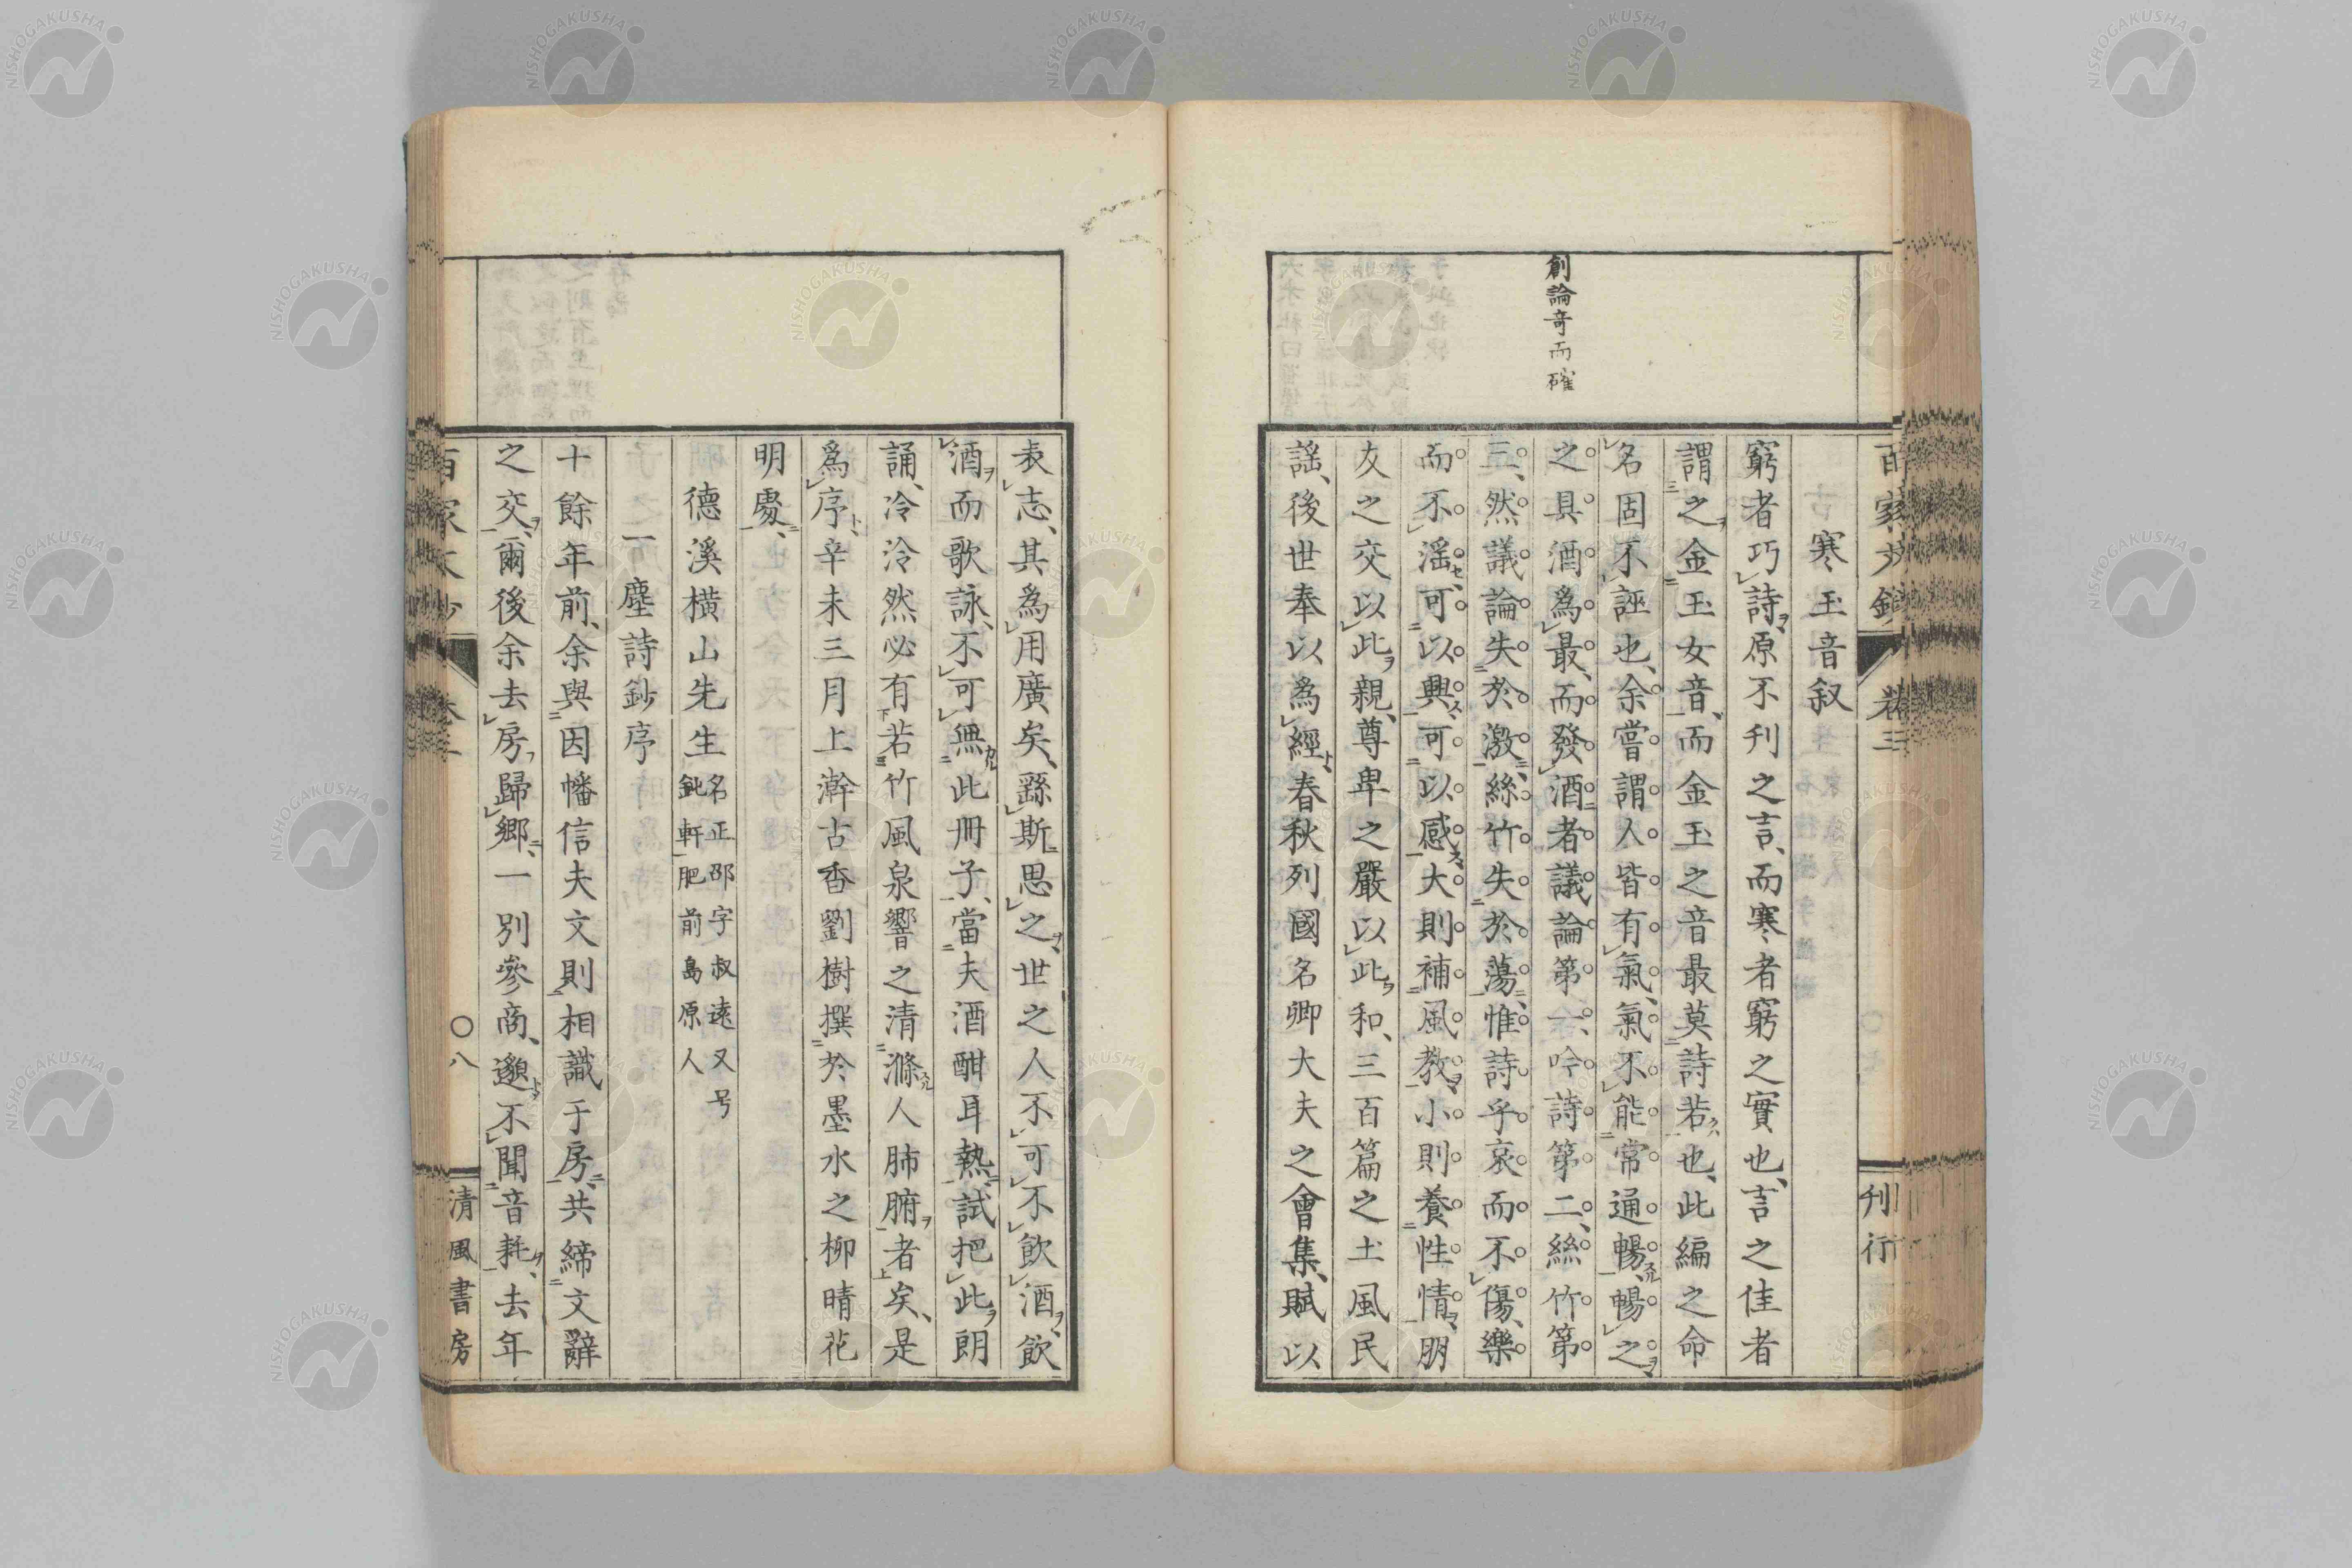 百家文鈔
卷三
刊行
創論奇而確
寒玉音叙
窮者巧詩原不刊之言、而寒者窮之實也、言之佳者
謂之金玉女音、而金玉之音最莫詩若也、此編之命
名固不誣也、余嘗謂人皆有氣、氣不能常通暢、暢之
之具酒為最、而發酒者議論第一、吟詩第二、絲竹第
三、然議論失於激、絲竹失於蕩、惟詩乎哀而不傷、樂
而不滛、可以興可以感大則補風教小則養性情朋
友之交以此親、尊卑之嚴以此和、三百篇之土風民
謡、後世奉以為經、春秋列國名卿大夫之會集、賦以
表志、其為用廣矣、繇斯思之、世之人不可不飲酒飲
酒而歌詠、不可無此冊子、當夫酒酣耳熱、試把此朗
誦、冷冷然必有若竹風泉響之清滌人肺腑者矣、是
為序、辛未三月上澣古香劉樹撰於墨水之柳晴花
明處、
德溪横山先生名正邵字叔遠又号
鈍軒肥前島原人
一塵詩鈔序
十餘年前、余與因幡信夫文則相識于房、共締文辭
之交、爾後余去房歸郷、一別參商、邈不聞音耗、去年
百家文鈔
卷三
〇八
清風書房
NISHOGAKUSHA